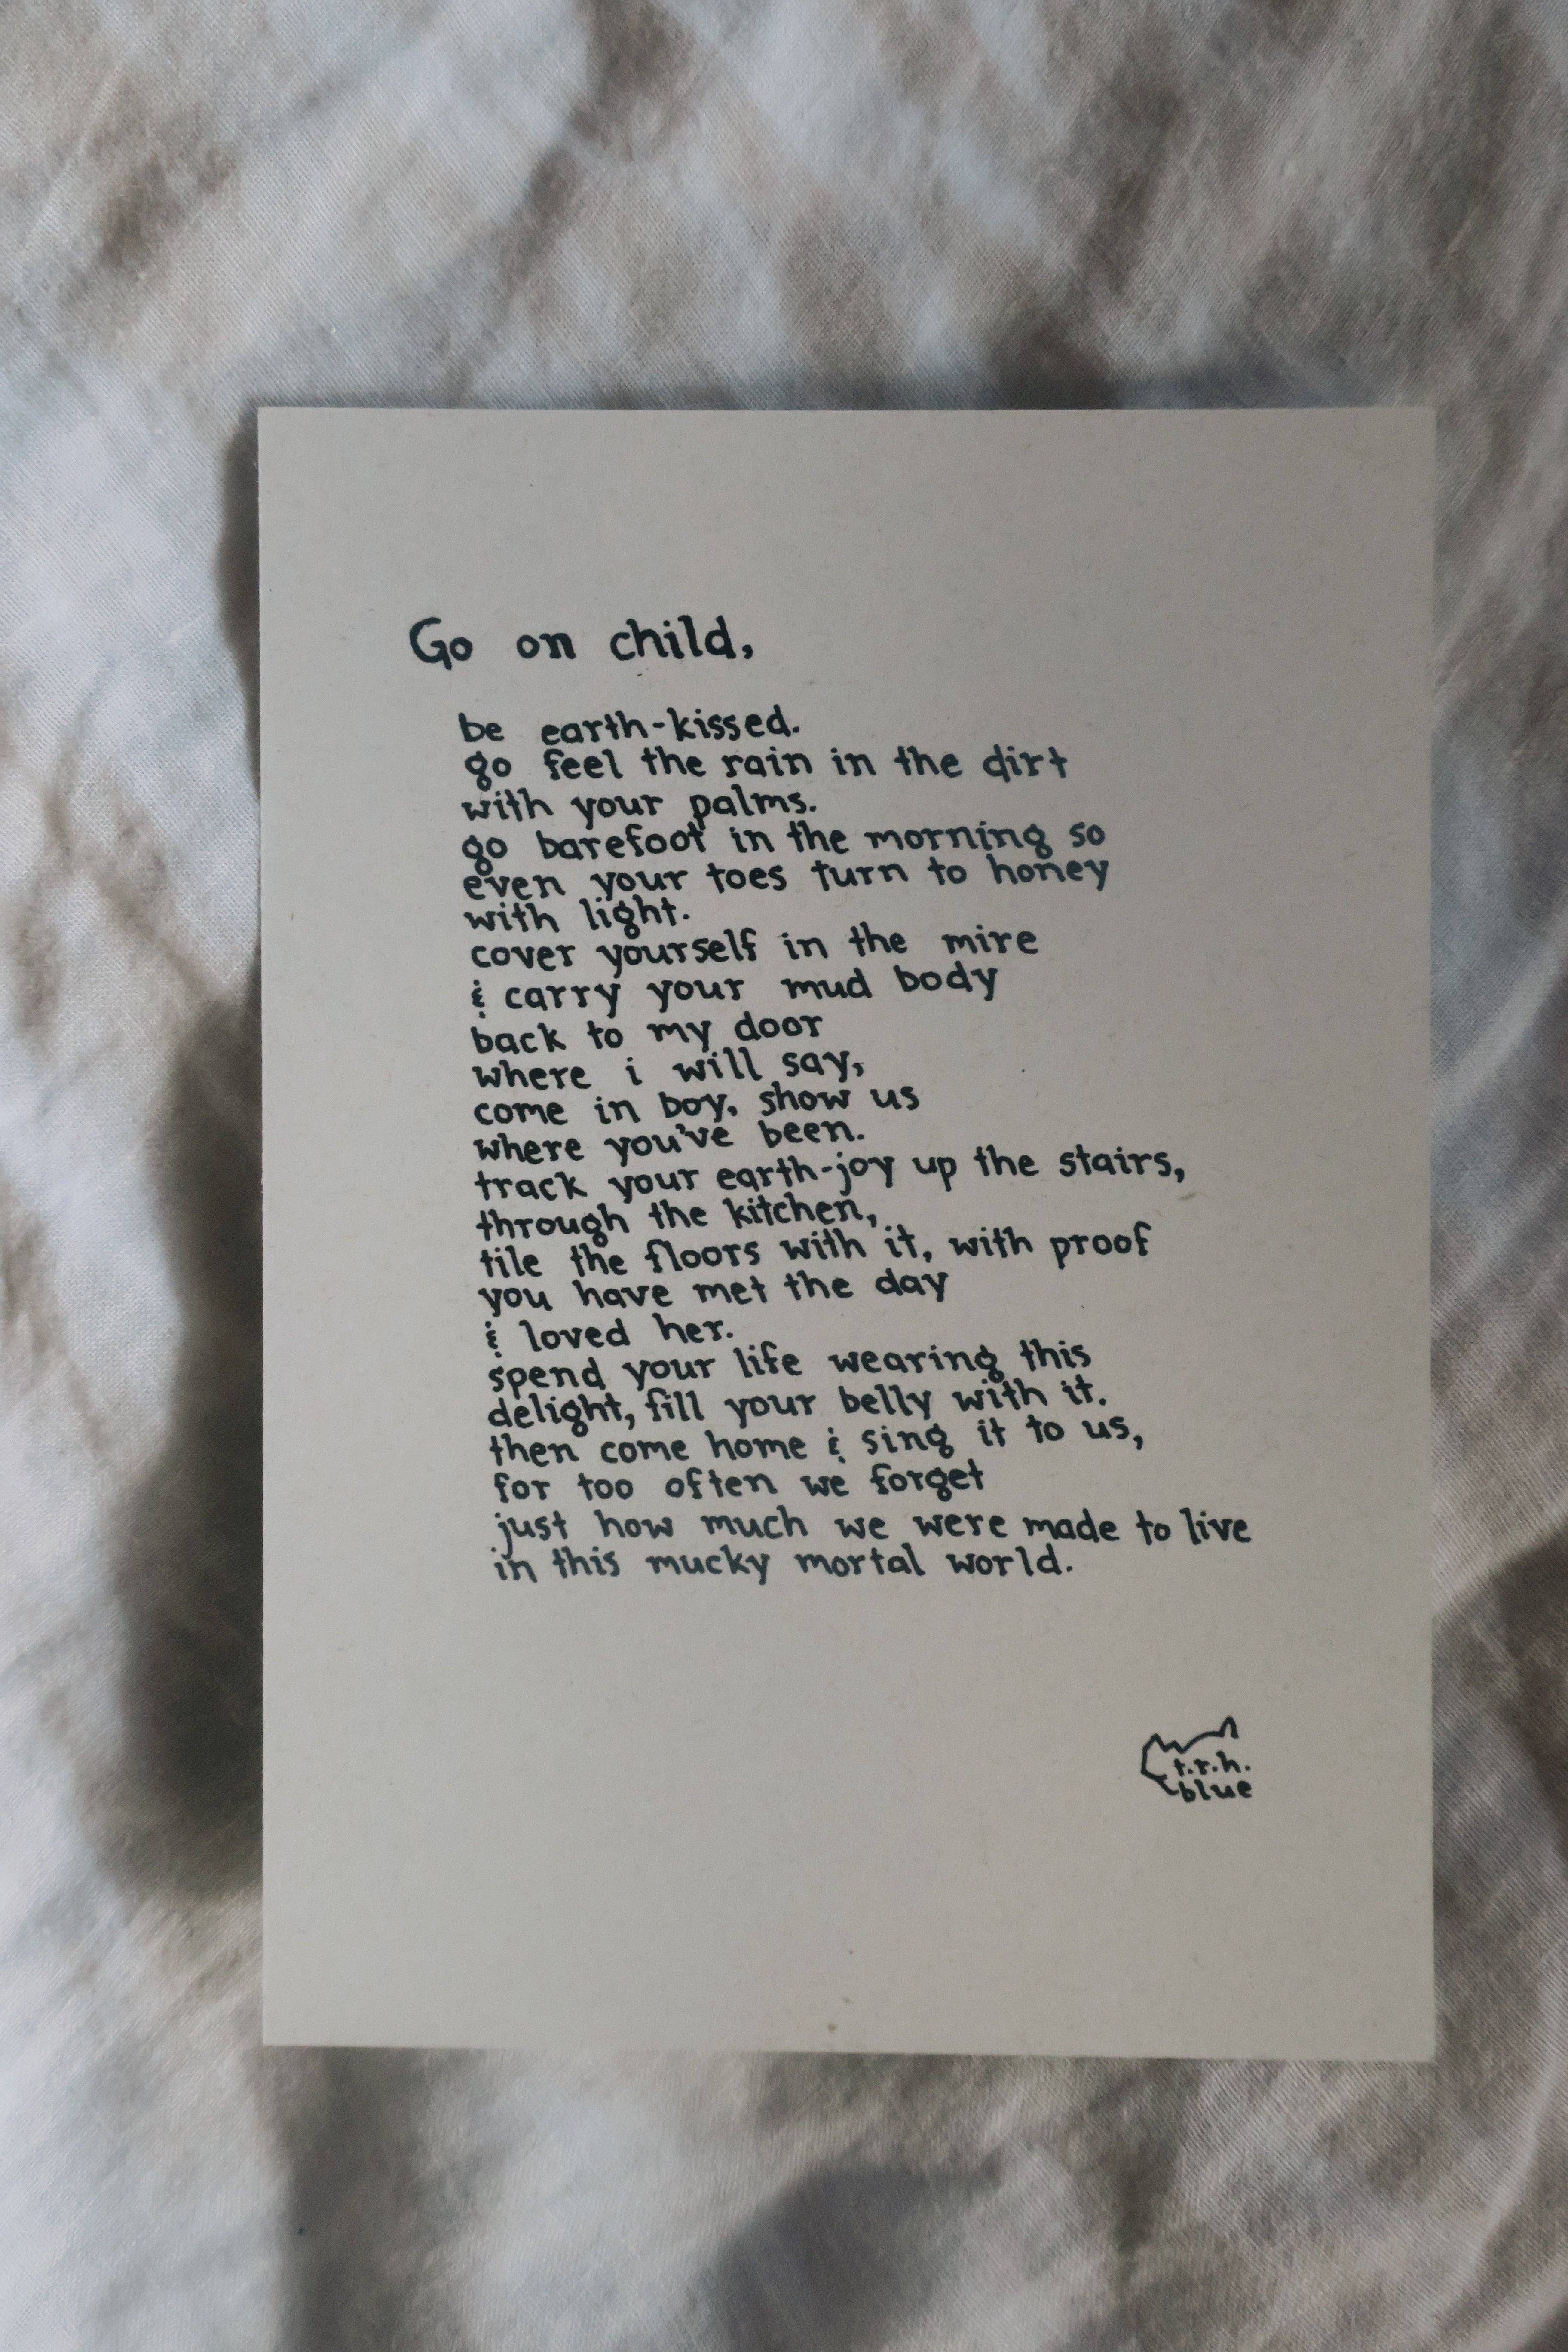 Go on child,
be earth-kissed.
go feel the rain in the dirt
with your palms.
go barefoot in the morning so
even your toes turn to honey
with light.
cover yourself in the mire
& carry your mud body
back to my door
where i will say,
come in boy, show us
where you've been.
track your earth-joy up the stairs,
through the kitchen,
tile the floors with it, with proof
you have met the day
& loved her.
spend your life wearing this
delight, fill your belly with it.
then come home & sing it to us,
for too often we forget
just how much we were made to live
in this mucky mortal world.
t.r.h.
blue